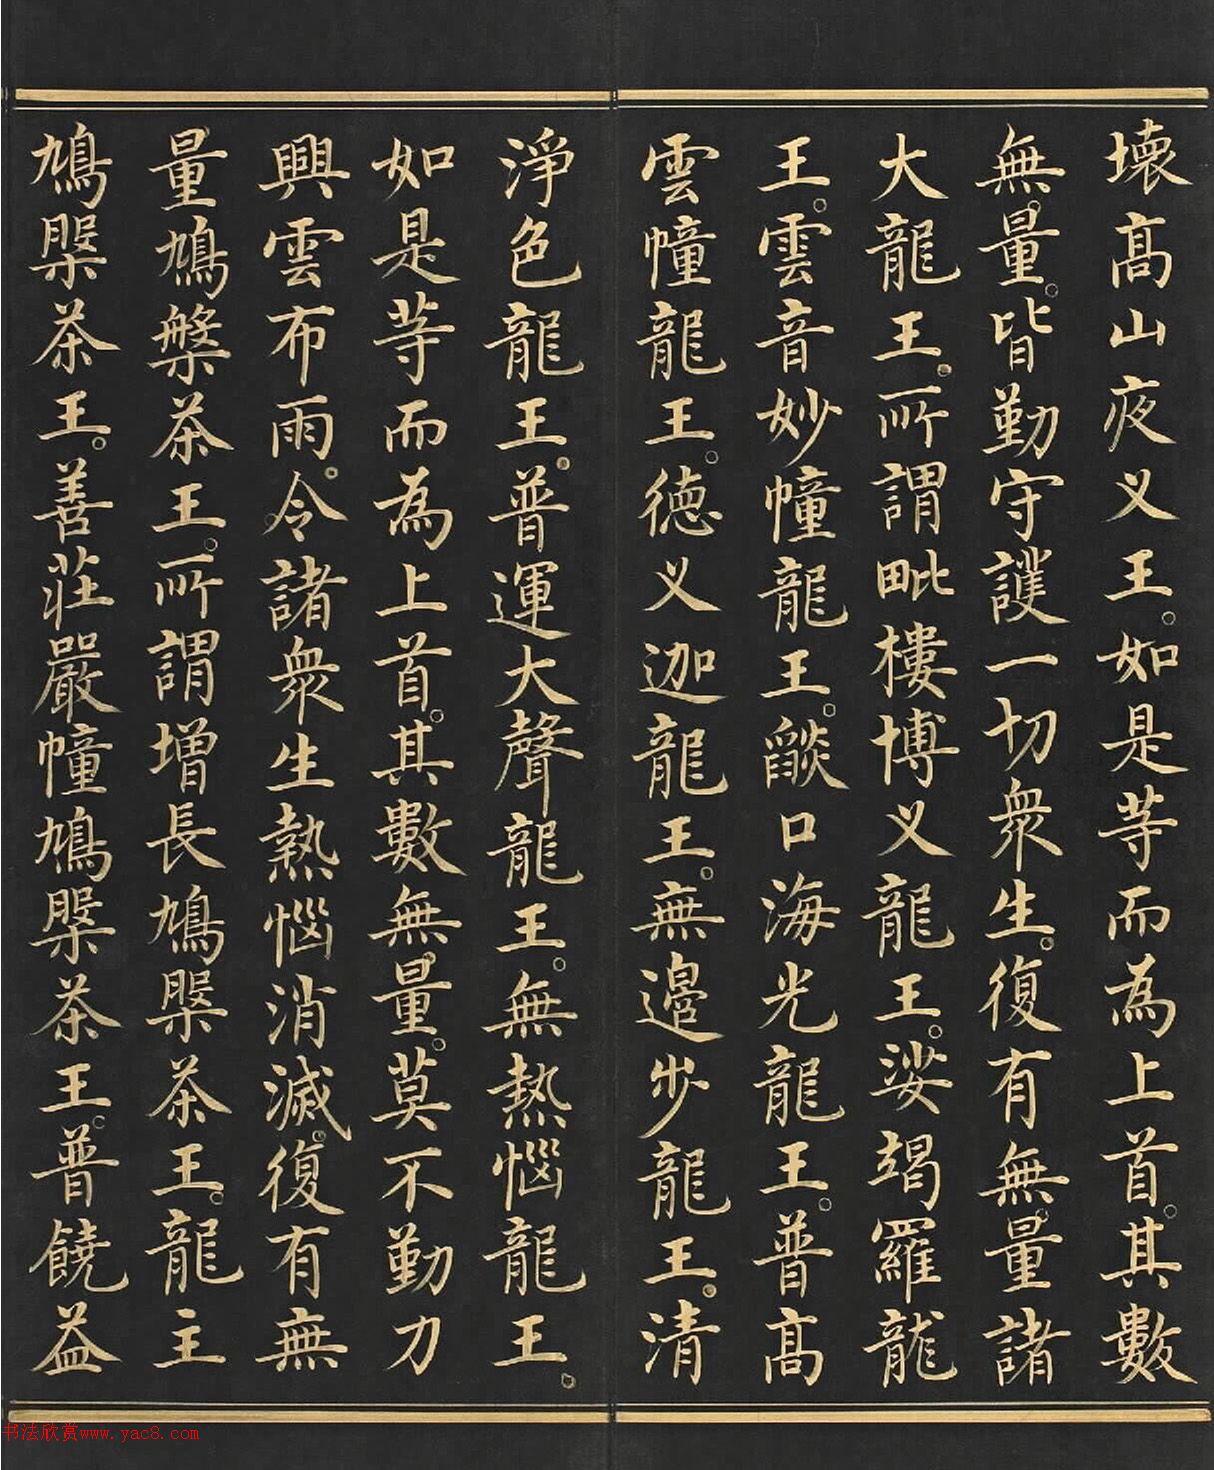 壞髙山夜义王。如是等而為上首。其數
無量。皆勤守護一切衆生。復有無量諸
大龍王。所謂毗樓博义龍王。娑竭羅龍
王。雲音妙幢龍王。燄口海光龍王。普髙
雲幢龍王。德义迦龍王。無邊步龍王。清
淨色龍王。普運大聲龍王。無熱惱龍王。
如是等而為上首。其數無量。莫不勤力
興雲布雨。令諸衆生熱惱消滅。復有無
量鳩槃茶王。所謂增長鳩槃茶王。龍主
鳩槃茶王。善莊嚴幢鳩槃茶王。普饒益
书法欣赏www.yac8.com